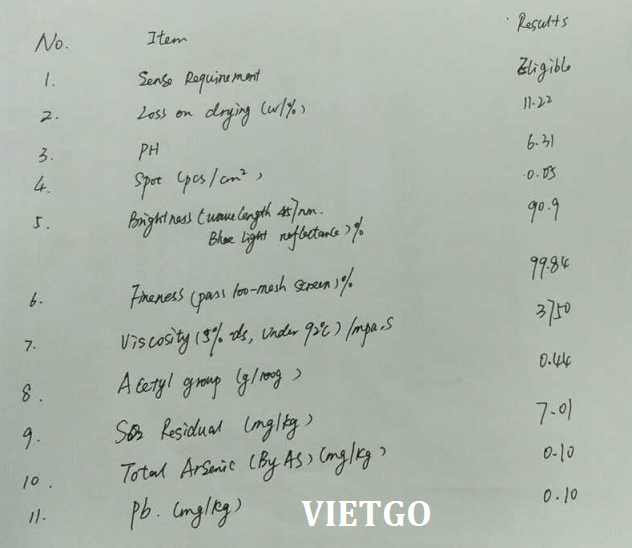 No. Item Results
1. Sense Requirement Eligible
2. Loss on drying (w/%) 11.22
3. PH 6.31
4. Spot (pcs/cm²) 0.05
5. Brightness (wavelength 457nm. 90.9
Blue light reflectance)%
6. Fineness (pass 100-mesh screen)% 99.84
7. Viscosity (5% ds, Under 92℃)/mpa.s 3750
8. Acetyl group (g/100g) 0.44
9. SO2 Residual (mg/kg) 7.01
10. Total Arsenic (By AS) (mg/kg) 0.10
11. Pb. (mg/kg) 0.10
VIETGO